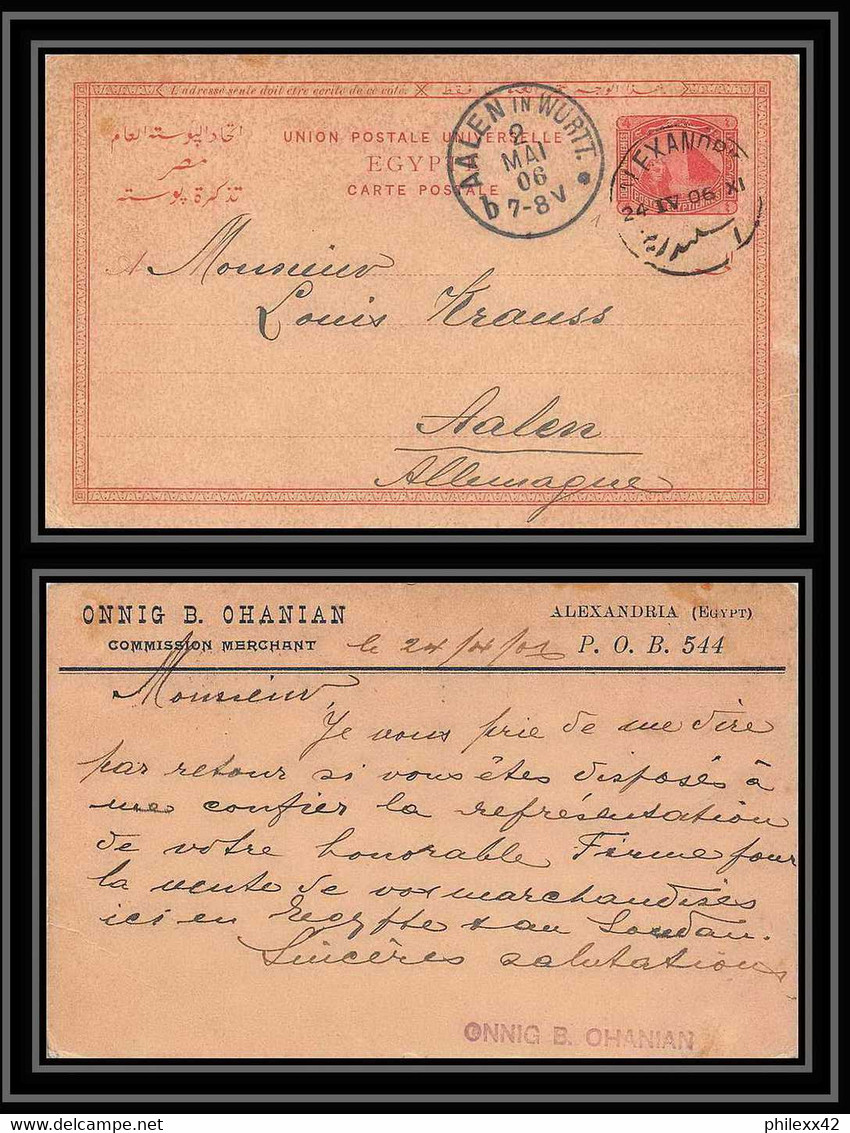 L'adresse seule doit être écrite de ce côté.
اتحاد البوسته العام
مصر
تذكرة بوسته
UNION POSTALE UNIVERSELLE
EGYPTE
CARTE POSTALE
AALEN IN WÜRTT.
2
MAI
06
b 7-8 V
ALEXANDRI
24 IV 06 XI
A Monsieur
Louis Krauss
Aalen
Allemagne
ONNIG B. OHANIAN
COMMISSION MERCHANT
ALEXANDRIA (EGYPT)
P. O. B. 544
le 24/04/06
Monsieur,
Je vous prie de me dire
par retour si vous êtes disposés à
me confier la représentation
de votre honorable Firme pour
la vente de vos marchandises
ici en Egypte & au Soudan.
Sincères salutations
ONNIG B. OHANIAN
philexx42